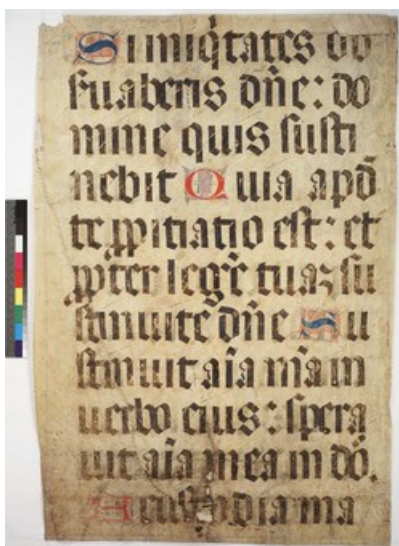 Si iniq̃tates ob
ſuaberis dñe: do
mine quis ſuſti
nebit Quia apđ
te ꝓpitiatio eſt: et
ꝓpter legẽ tuaꝫ ſu
ſtinui te dñe Su
ſtinuit aĩa mẽa in
uerbo eius: ſpera
uit aĩa mea in dõ.
A cuſtodia ma